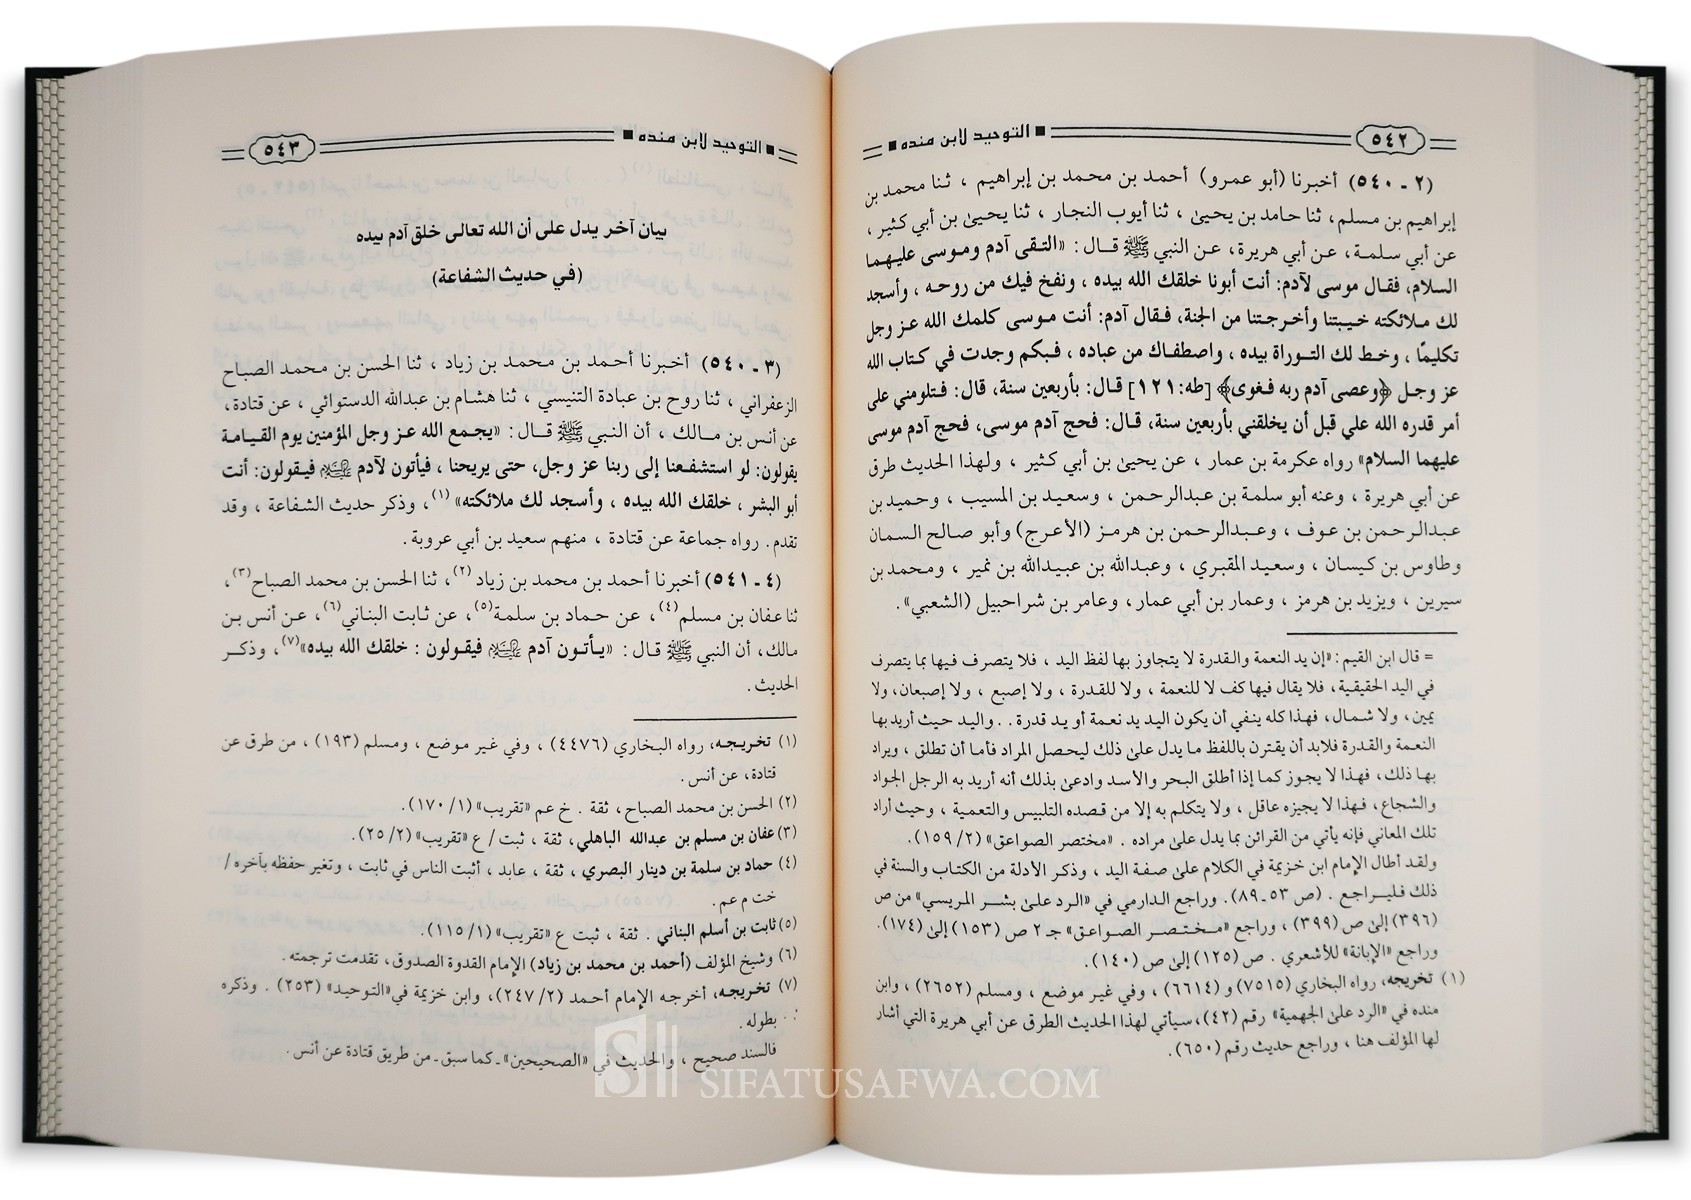 ٥٤٢
■ التوحيد لابن منده ■
(٢ ـ ٥٤٠) أخبرنا (أبو عمرو) أحمد بن محمد بن إبراهيم ، ثنا محمد بن
إبراهيم بن مسلم، ثنا حامد بن يحيىٰ ، ثنا أيوب النجار ، ثنا يحيىٰ بن أبي كثير ،
عن أبي سلمة، عن أبي هريرة، عن النبي ﷺ قال: «التقى آدم وموسى عليهما
السلام، فقال موسى لآدم: أنت أبونا خلقك الله بيده ، ونفخ فيك من روحه ، وأسجد
لك ملائكته خيبتنا وأخرجتنا من الجنة، فقال آدم: أنت موسى كلمك الله عز وجل
تكليمًا ، وخط لك التوراة بيده ، واصطفاك من عباده ، فبكم وجدت في كتاب الله
عز وجل ﴿وعصى آدم ربه فغوى﴾ [طه: ١٢١] قال: بأربعين سنة، قال: فتلومني على
أمر قدره الله علي قبل أن يخلقني بأربعين سنة، قال: فحج آدم موسى، فحج آدم موسى
عليهما السلام» رواه عكرمة بن عمار ، عن يحيىٰ بن أبي كثير ، ولهذا الحديث طرق
عن أبي هريرة ، وعنه أبو سلمة بن عبدالرحمن ، وسعيد بن المسيب ، وحميد بن
عبدالرحمن بن عوف ، وعبدالرحمن بن هرمز (الأعرج) وأبو صالح السمان
وطاوس بن كيسان ، وسعيد المقبري ، وعبدالله بن عبيدالله بن نمير ، ومحمد بن
سيرين ، ويزيد بن هرمز ، وعمار بن أبي عمار، وعامر بن شراحبيل (الشعبي)».
= قال ابن القيم: «إن يد النعمة والقدرة لا يتجاوز بها لفظ اليد ، فلا يتصرف فيها بما يتصرف
في اليد الحقيقية، فلا يقال فيها كف لا للنعمة ، ولا للقدرة ، ولا إصبع ، ولا إصبعان، ولا
يمين، ولا شمال، فهذا كله ينفي أن يكون اليد يد نعمة أو يد قدرة. . واليد حيث أريد بها
النعمة والقدرة فلابد أن يقترن باللفظ ما يدل علىٰ ذلك ليحصل المراد فأما أن تطلق ، ويراد
بها ذلك، فهذا لا يجوز كما إذا أطلق البحر والأسد وادعىٰ بذلك أنه أريد به الرجل الجواد
والشجاع، فهذا لا يجيزه عاقل ، ولا يتكلم به إلا من قصده التلبيس والتعمية ، وحيث أراد
تلك المعاني فإنه يأتي من القرائن بما يدل علىٰ مراده . «مختصر الصواعق» (٢/ ١٥٩).
ولقد أطال الإمام ابن خزيمة في الكلام علىٰ صفة اليد ، وذكر الأدلة من الكتاب والسنة في
ذلك فليراجع . (ص ٥٣ ـ ٨٩). وراجع الدارمي في «الرد علىٰ بشر المريسي» من ص
(٣٩٦) إلىٰ ص (٣٩٩) ، وراجع «مختصر الصواعق» جـ ٢ ص (١٥٣) إلىٰ (١٧٤).
وراجع «الإبانة» للأشعري . ص (١٢٥) إلىٰ ص (١٤٠).
(١) تخريجه، رواه البخاري (٧٥١٥) و (٦٦١٤) ، وفي غير موضع ، ومسلم (٢٦٥٢) ، وابن
منده في «الرد علىٰ الجهمية» رقم (٤٢)، سيأتي لهذا الحديث الطرق عن أبي هريرة التي أشار
لها المؤلف هنا ، وراجع حديث رقم (٦٥٠).
■ التوحيد لابن منده ■
٥٤٣
بيان آخر يدل على أن الله تعالى خلق آدم بيده
(في حديث الشفاعة)
(٣ ـ ٥٤٠) أخبرنا أحمد بن محمد بن زياد ، ثنا الحسن بن محمد الصباح
الزعفراني ، ثنا روح بن عبادة التنيسي ، ثنا هشام بن عبدالله الدستوائي ، عن قتادة،
عن أنس بن مالك ، أن النبي ﷺ قال: «يجمع الله عز وجل المؤمنين يوم القيامة
يقولون: لو استشفعنا إلى ربنا عز وجل، حتى يريحنا ، فيأتون لآدم ﵇ فيقولون: أنت
أبو البشر ، خلقك الله بيده ، وأسجد لك ملائكته» (١)، وذكر حديث الشفاعة ، وقد
تقدم. رواه جماعة عن قتادة ، منهم سعيد بن أبي عروبة.
(٤ ـ ٥٤١) أخبرنا أحمد بن محمد بن زياد (٢)، ثنا الحسن بن محمد الصباح(٣)،
ثنا عفان بن مسلم(٤)، عن حماد بن سلمة(٥)، عن ثابت البناني(٦)، عن أنس بن
مالك، أن النبي ﷺ قال: «يأتون آدم ﵇ فيقولون: خلقك الله بيده»(٧)، وذكر
الحديث .
(١) تخريجه، رواه البخاري (٤٤٧٦) ، وفي غير موضع ، ومسلم (١٩٣) ، من طرق عن
قتادة، عن أنس .
(٢) الحسن بن محمد الصباح، ثقة . خ عم «تقريب» (١/ ١٧٠).
(٣) عفان بن مسلم بن عبدالله الباهلي، ثقة ، ثبت / ع «تقريب» (٢/ ٢٥).
(٤) حماد بن سلمة بن دينار البصري ، ثقة ، عابد ، أثبت الناس في ثابت ، وتغير حفظه بآخره /
خت م عم .
(٥) ثابت بن أسلم البناني . ثقة ، ثبت ع «تقريب» (١/ ١١٥).
(٦) وشيخ المؤلف (أحمد بن محمد بن زياد) الإمام القدوة الصدوق، تقدمت ترجمته.
(٧) تخريجه، أخرجه الإمام أحمد (٢/ ٢٤٧)، وابن خزيمة في «التوحيد» (٢٥٣) . وذكره
بطوله .
فالسند صحيح ، والحديث في «الصحيحين» ـ كما سبق ـ من طريق قتادة عن أنس .
SIFATUSAFWA.COM